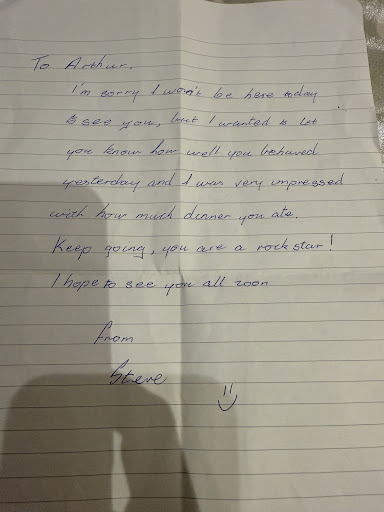 To Arthur.
I'm sorry I won't be here today
to see you, but I wanted to let
you know how well you behaved
yesterday and I was very impressed
with how much dinner you ate.
Keep going, you are a rockstar!
I hope to see you all soon
from
Steve